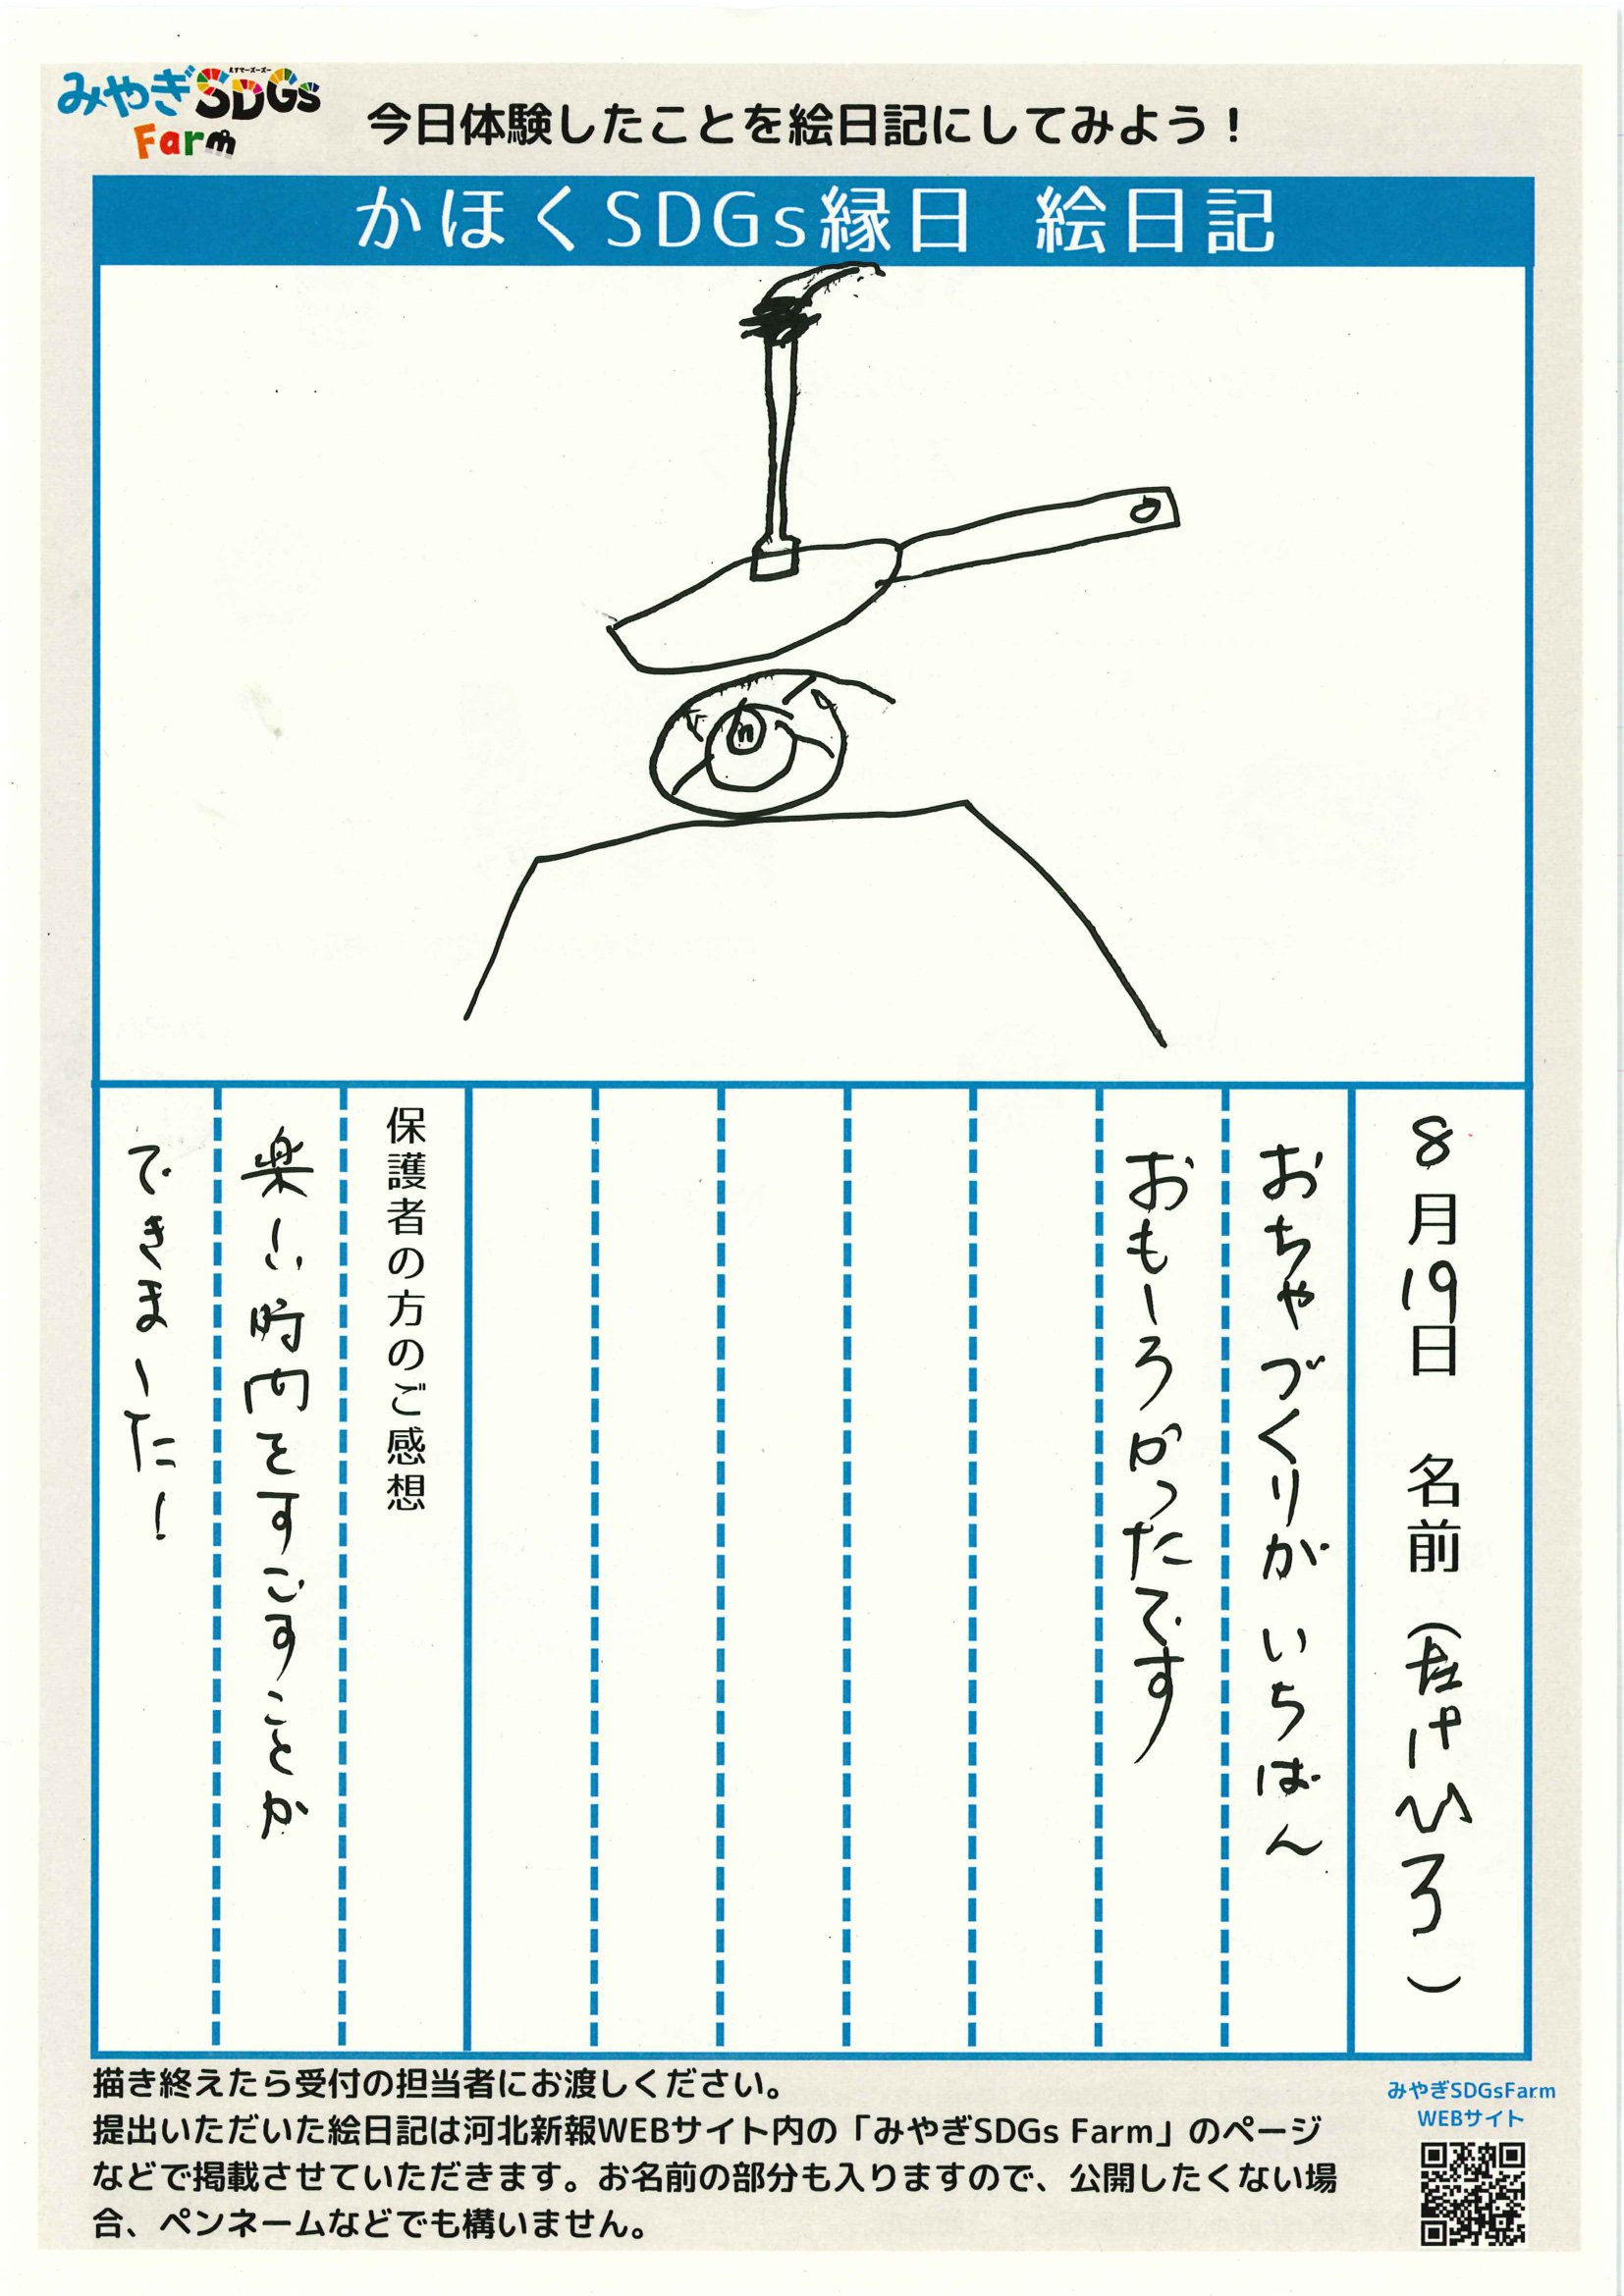 みやぎSDGs
Farm
今日体験したことを絵日記にしてみよう！
かほくSDGs縁日 絵日記
8月19日 名前（たけひろ）
おちゃづくりが いちばん
おもしろかったです
保護者の方のご感想
楽しい時間をすごすことが
できました！
描き終えたら受付の担当者にお渡しください。
提出いただいた絵日記は河北新報WEBサイト内の「みやぎSDGs Farm」のページ
などで掲載させていただきます。お名前の部分も入りますので、公開したくない場
合、ペンネームなどでも構いません。
みやぎSDGsFarm
WEBサイト